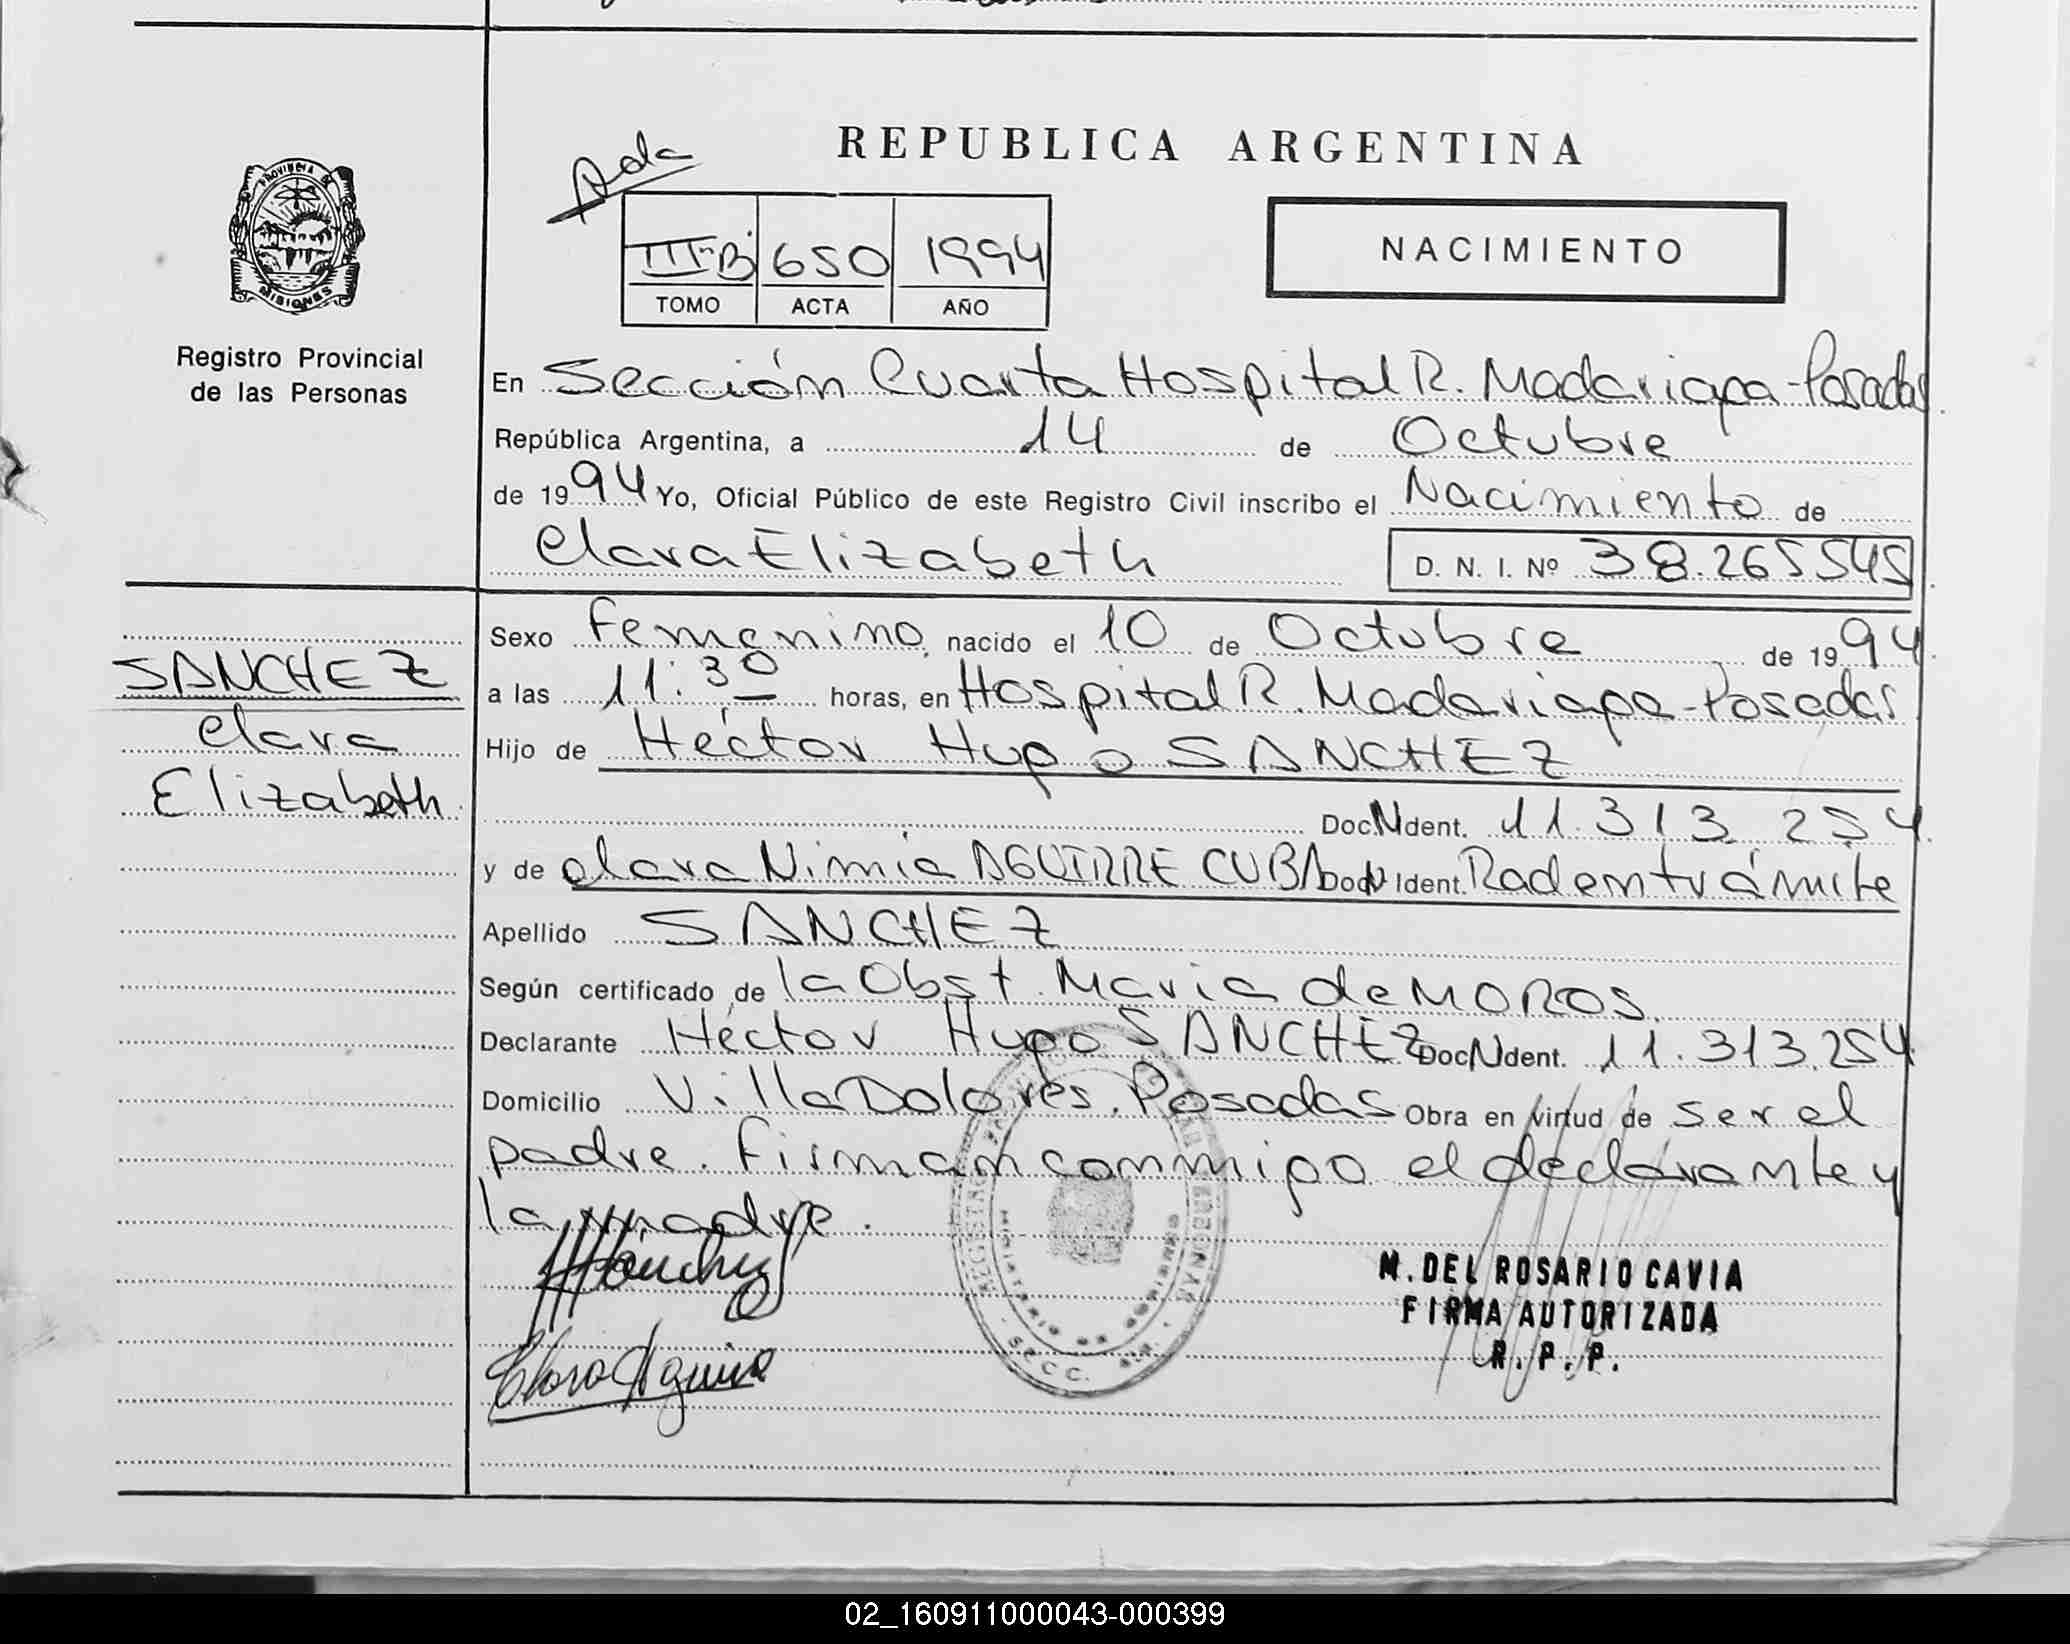 REPUBLICA ARGENTINA
Ada
III-B 650 1994
TOMO ACTA AÑO
NACIMIENTO
PROVINCIA DE
MISIONES
Registro Provincial
de las Personas
En Sección Cuarta Hospital R. Madariaga-Posadas
República Argentina, a 14 de Octubre
de 1994 Yo, Oficial Público de este Registro Civil inscribo el Nacimiento de
Clara Elizabeth D. N. I. Nº 38.265545
SANCHEZ
Clara
Elizabeth
Sexo Femenino, nacido el 10 de Octubre de 1994
a las 11:30 horas, en Hospital R. Madariaga-Posadas
Hijo de Héctor Hugo SANCHEZ
Doc. N Ident. 11.313.254
y de Clara Nimia AGUIRRE CUBA Doc N Ident. Rad en trámite
Apellido SANCHEZ
Según certificado de la Obst. Maria de MOROS.
Declarante Héctor Hugo SANCHEZ Doc N Ident. 11.313.254
Domicilio Villa Dolores. Posadas Obra en virtud de ser el
padre. Firman conmigo el declarante y
la madre.
HHSánchez
Clara Aguirre
MINISTERIO DE GOBIERNO
SECC.
M. DEL ROSARIO CAVIA
FIRMA AUTORIZADA
R. P. P.
02_160911000043-000399